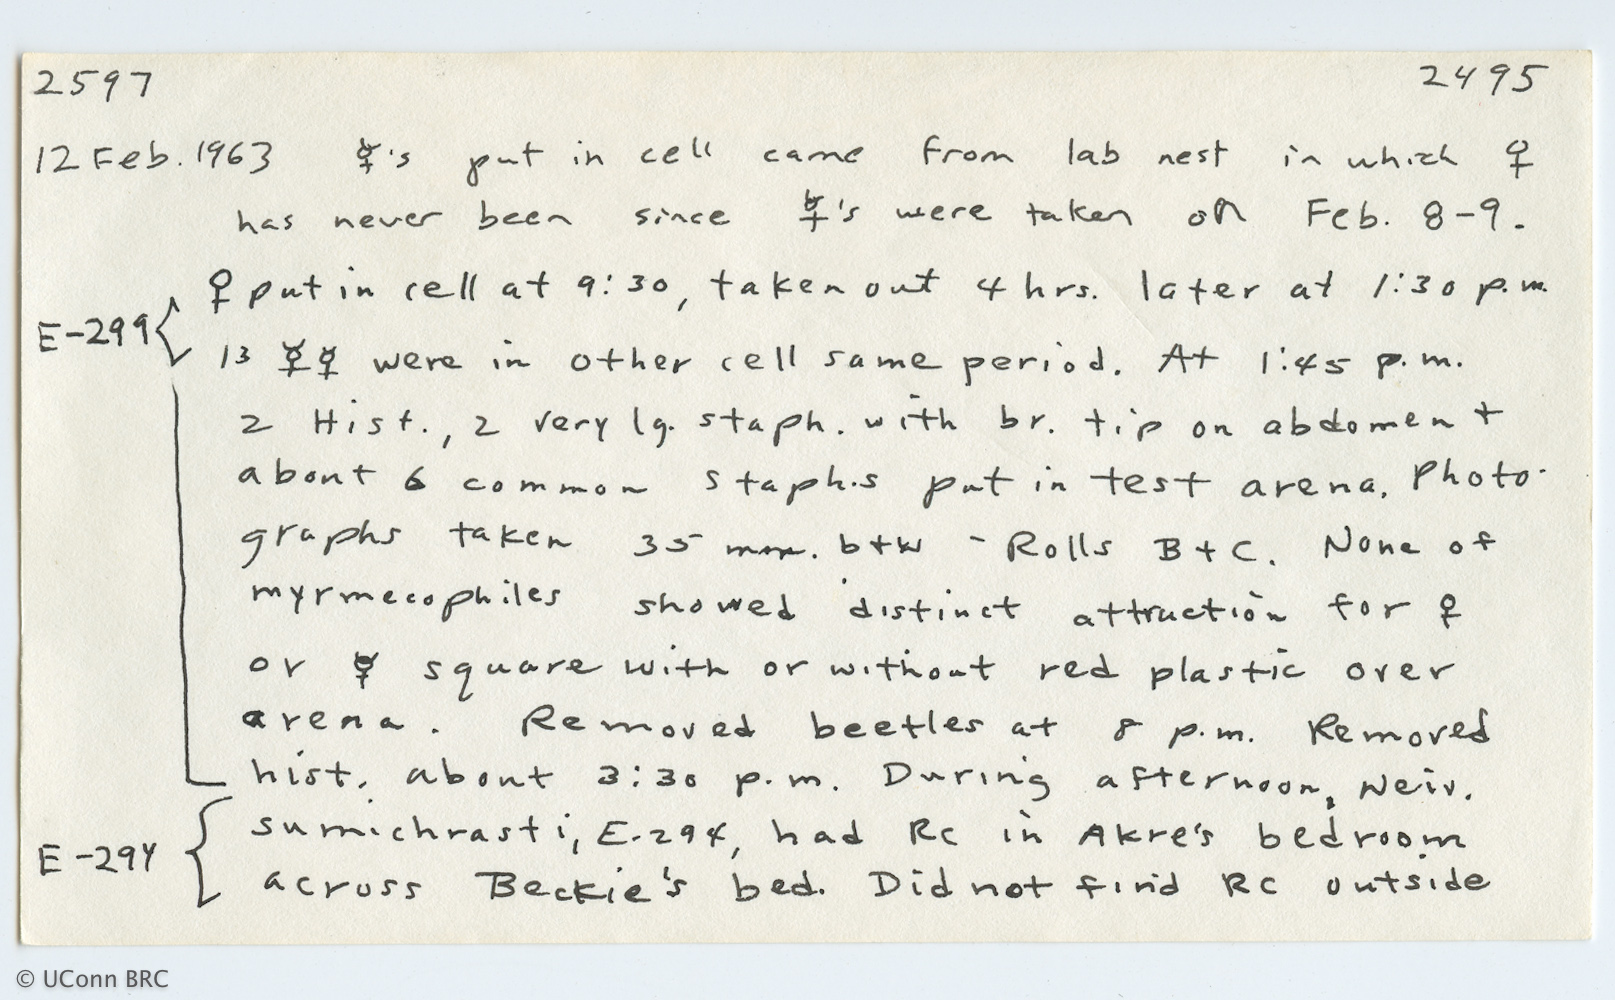 2597 2495
12 Feb. 1963 ☿'s put in cell came from lab nest in which ♀
has never been since ☿'s were taken on Feb. 8-9.
♀ put in cell at 9:30, taken out 4 hrs. later at 1:30 p.m.
E-299
13 ☿☿ were in other cell same period. At 1:45 p.m.
2 Hist., 2 very lg. staph. with br. tip on abdomen +
about 6 common staph.s put in test arena. Photo-
graphs taken 35 mm. b+w - Rolls B+C. None of
myrmecophiles showed distinct attraction for ♀
or ☿ square with or without red plastic over
arena. Removed beetles at 8 p.m. Removed
hist. about 3:30 p.m. During afternoon, Neiv.
sumichrasti, E-294, had RC in Akre's bedroom
E-294
across Beckie's bed. Did not find RC outside
© UConn BRC